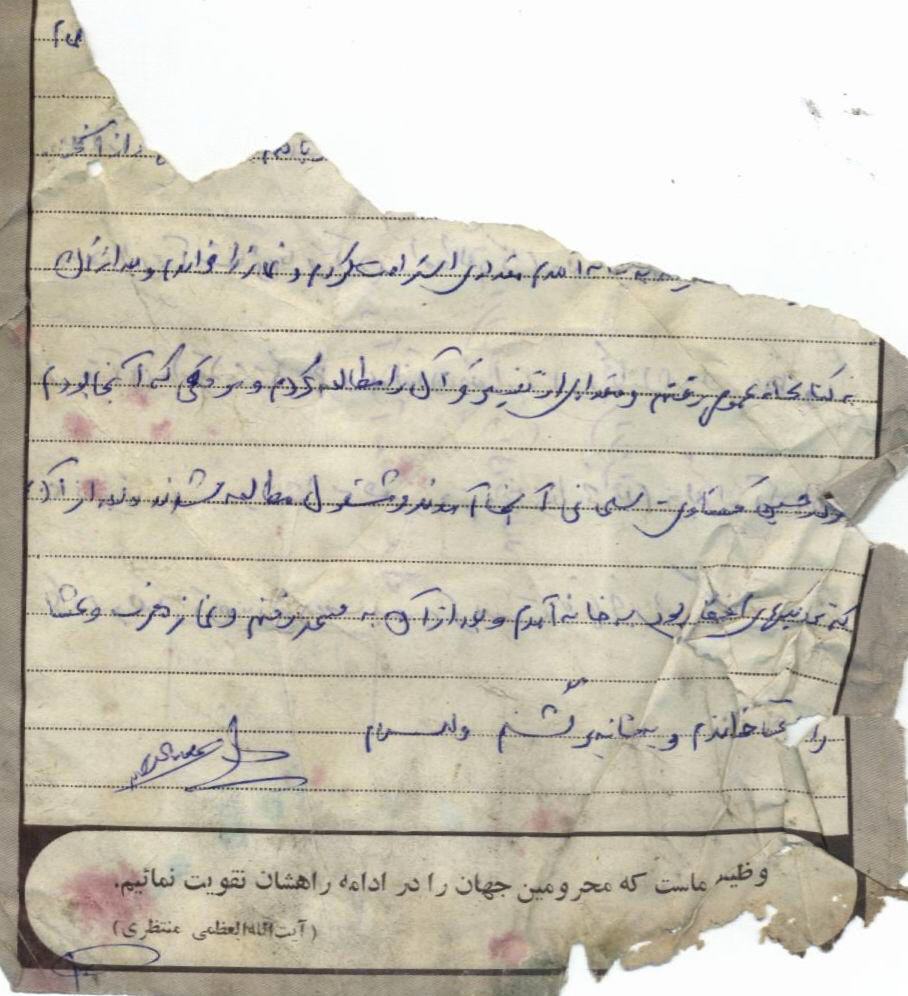 به خانه آمدم مقداری استراحت کردم و نماز را خواندم و بعد از آن
به کتابخانه عمومی رفتم و مقداری از تفسیر قرآن را مطالعه کردم و موقعی که آنجا بودم
آنجا آمدند و مشغول مطالعه شدند و بعد از آن
که نزدیکهای افطار بود به خانه آمدم و بعد از آن به مسجد رفتم و نماز مغرب و عشا
را آنجا خاندم و به خانه برگشتم والسلام
وظیفه ماست که محرومین جهان را در ادامه راهشان تقویت نمائیم.
(آیت‌الله‌العظمی منتظری)